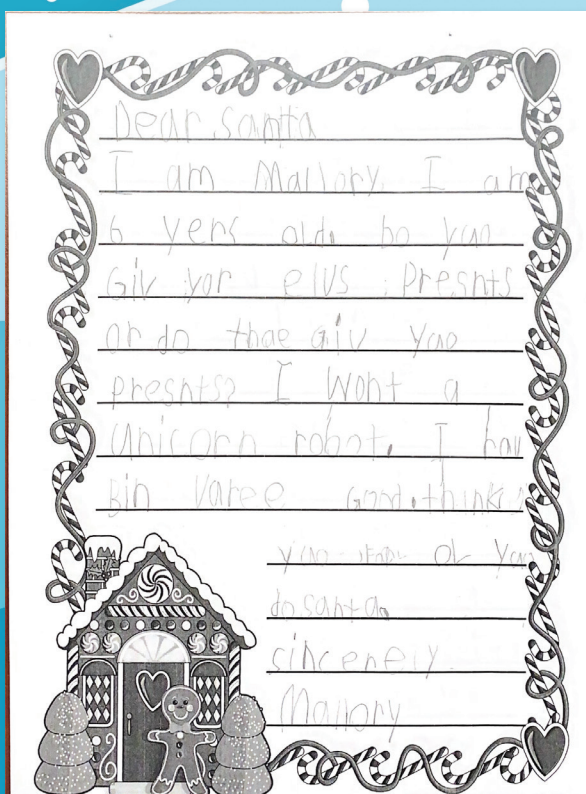 Dear Santa
I am Mallory. I am
6 yers old. Do yuo
Giv yor elvs presnts
or do thae giv yuo
presnts? I wont a
Unicorn robot. I hav
Bin varee Good. think
yuo for ol yuo
do santa.
sincerely
Mallory